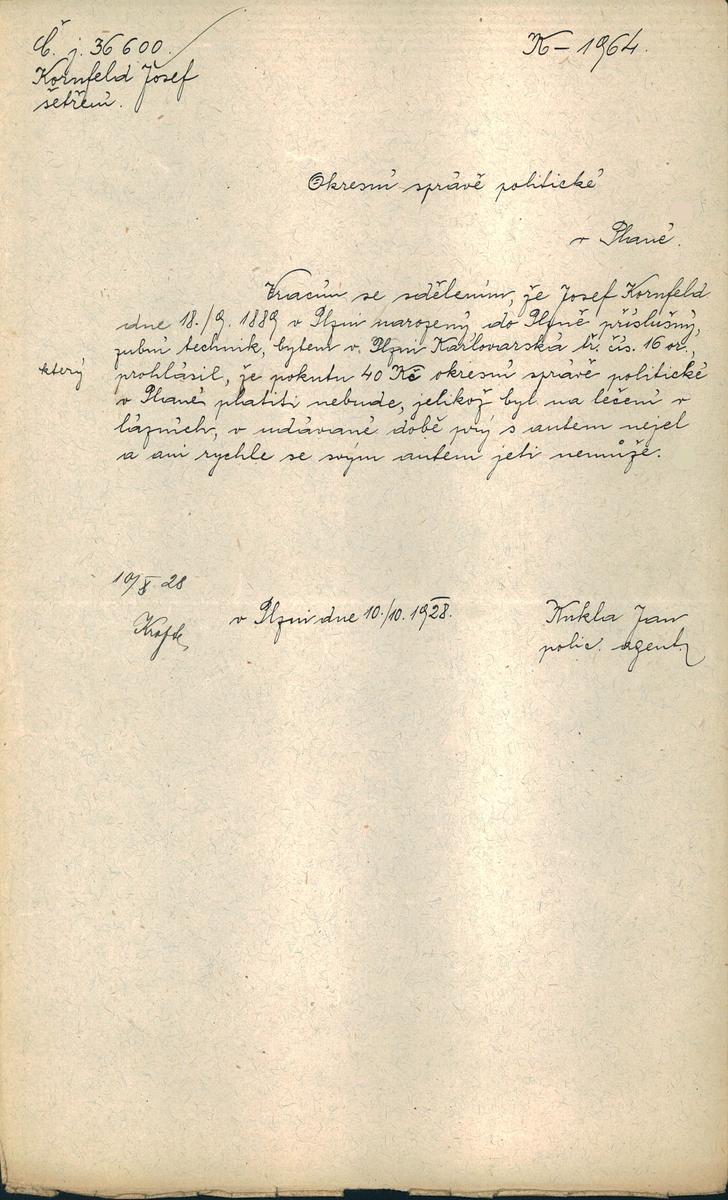 Č. j. 36600.
K – 1964.
Kornfeld Josef
šetření.
Okresní správě politické
v Plané.
Vracím se sdělením, že Josef Kornfeld
dne 18./9. 1889 v Plzni narozený do Plzně příslušný,
zubní technik, bytem v Plzni Karlovarská tř. čís. 16 or.,
který prohlásil, že pokutu 40 Kč okresní správě politické
v Plané platiti nebude, jelikož byl na léčení v
lázních, v udávané době prý s autem nejel
a ani rychle se svým autem jeti nemůže.
10/X 28
v Plzni dne 10./10. 1928.
Kukla Jan
polic. agent